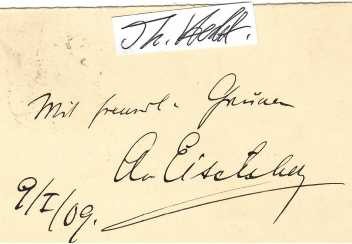 Th.
Mit freundl. Grüßen
Av Eiselsberg
9/I/09.